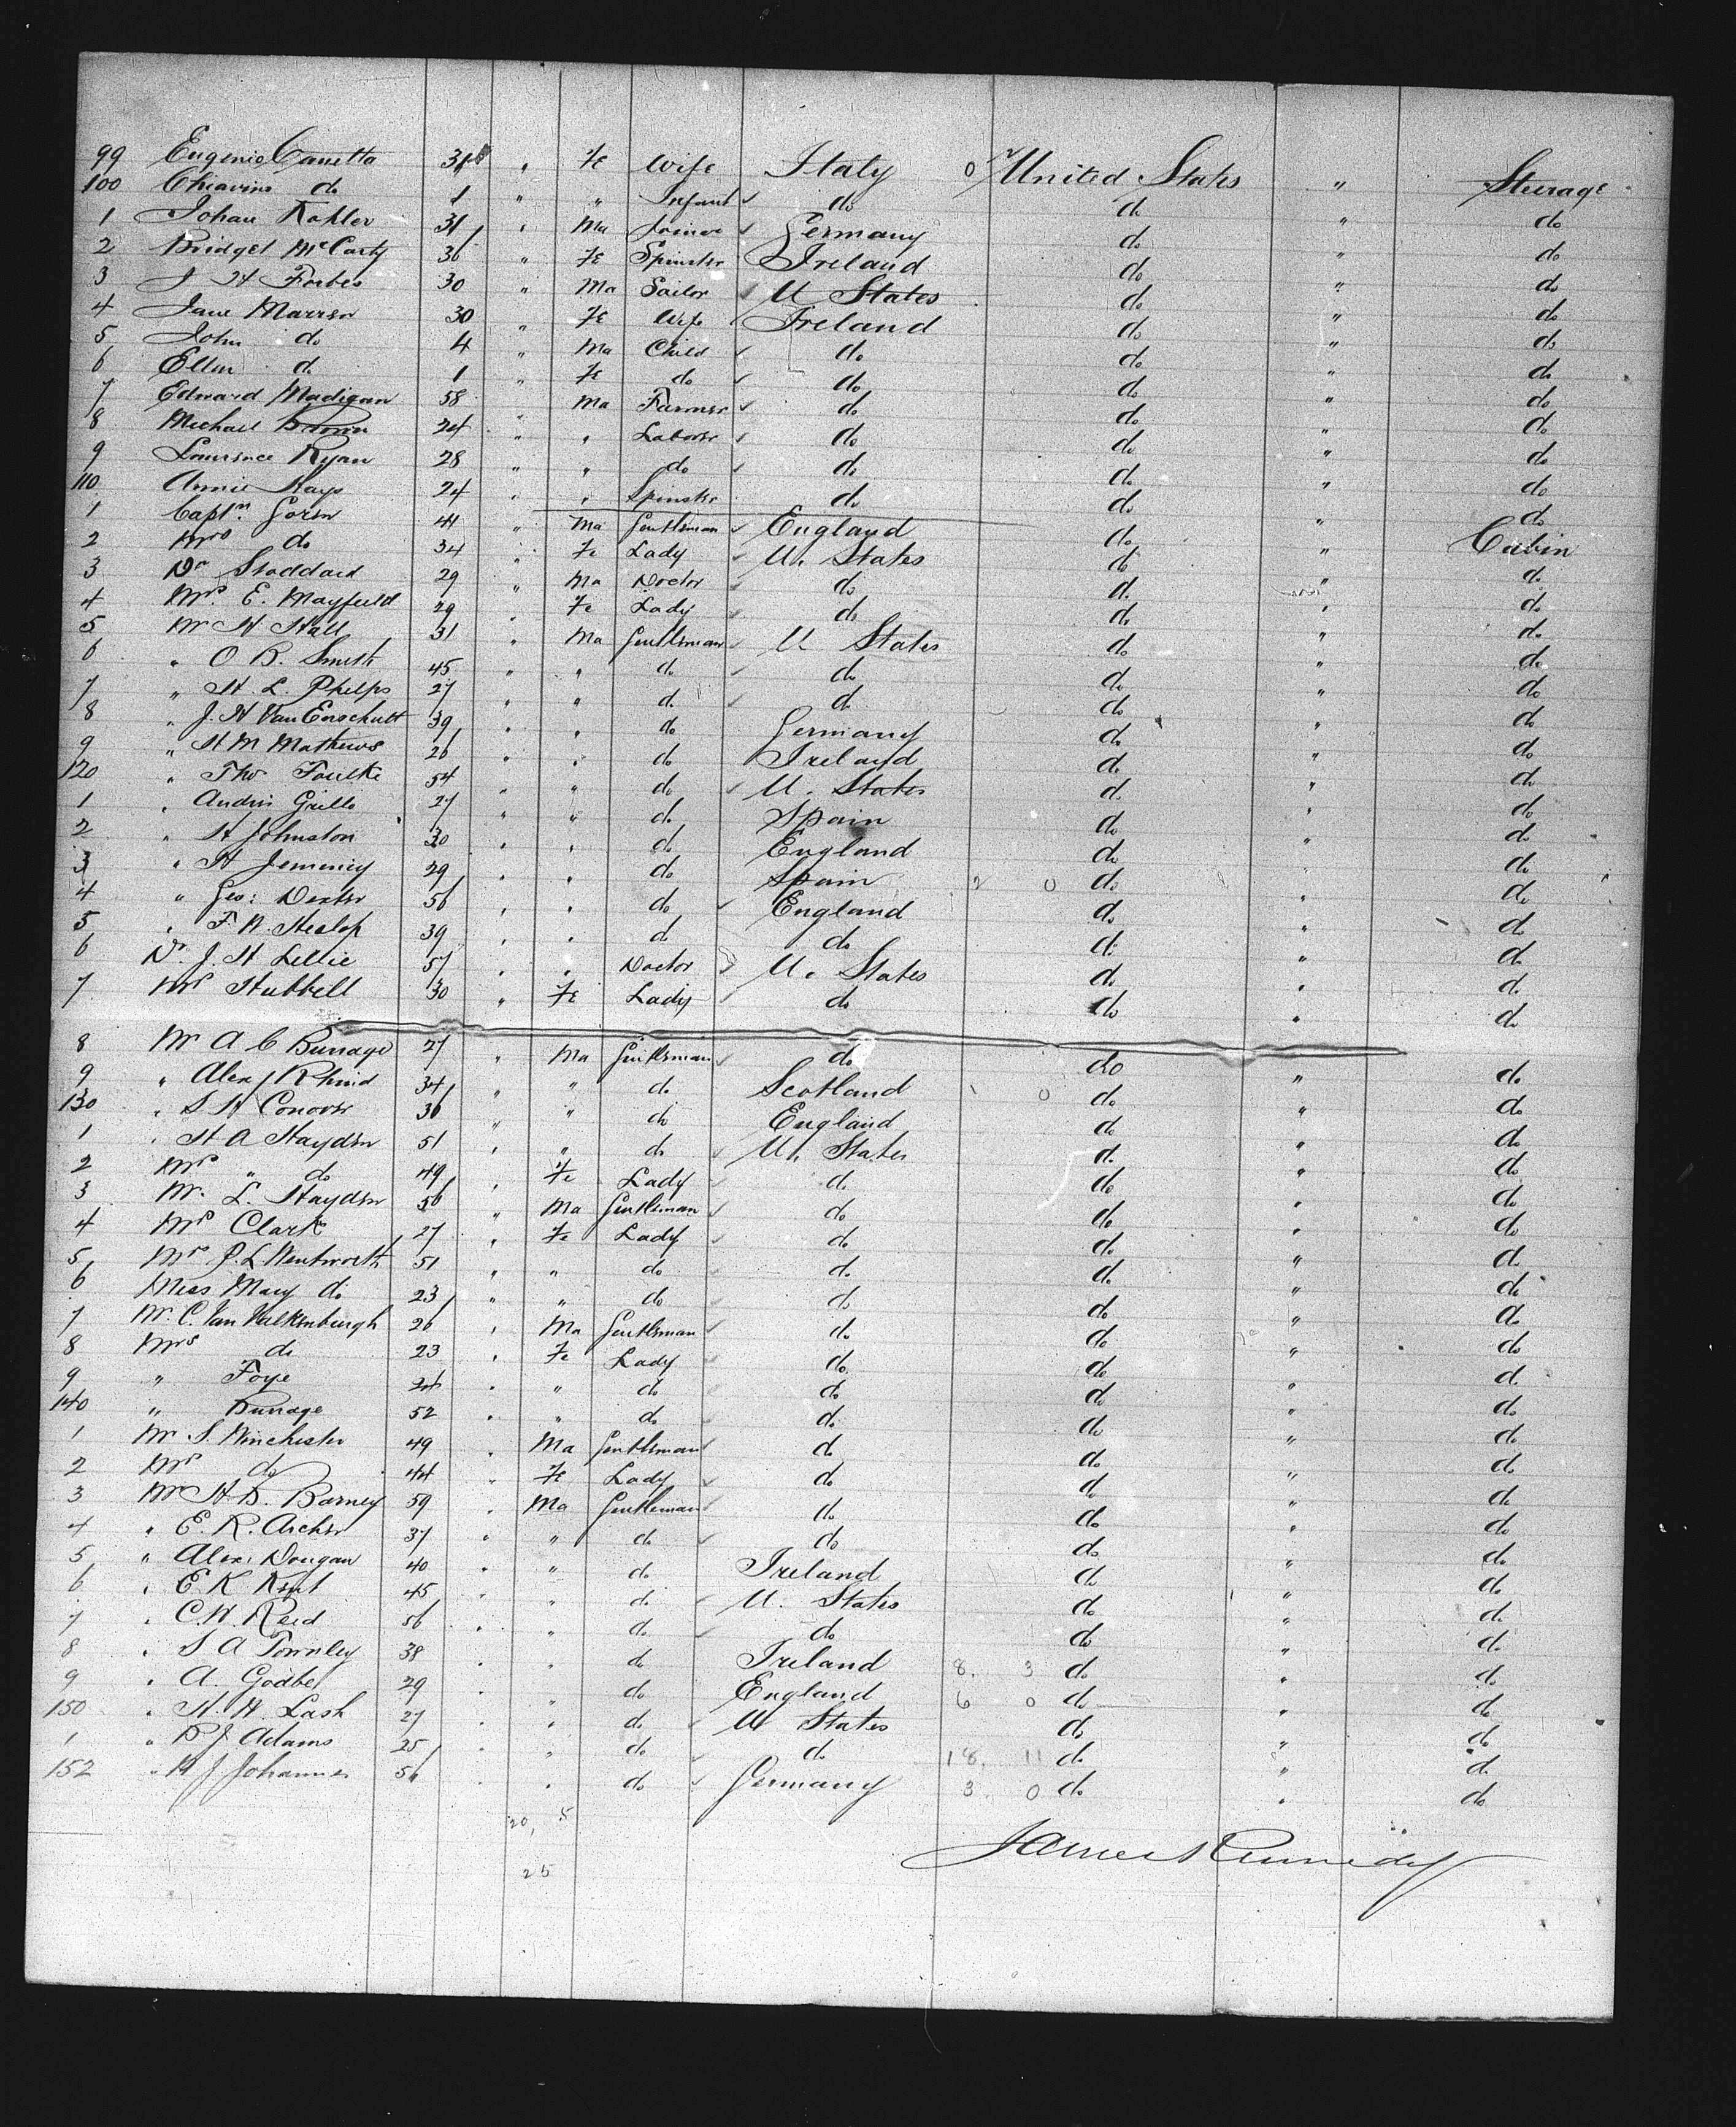 99 Eugenio Canetta 31 " Fe Wife Italy 0 United States " Steerage
100 Chiavino do 1 " " Infant do do " do
1 Johan Kohler 31 " Ma Joiner Germany do " do
2 Bridget McCarty 36 " Fe Spinster Ireland do " do
3 J H Forbes 30 " Ma Sailor U States do " do
4 Jane Marren 30 " Fe Wife Ireland do " do
5 John do 4 " Ma Child do do " do
6 Ellen do 1 " Fe do do do " do
7 Edward Madigan 58 " Ma Farmer do do " do
8 Michael 24 " " Laborer do do " do
9 Lawrence Ryan 28 " " do do do " do
110 Annie Kays 24 " " Spinster do do " do
1 Captn. Goren 41 " Ma Gentleman England do " Cabin
2 Mrs do 34 " Fe Lady Un. States do " do
3 Dr Stoddard 29 " Ma Doctor do do " do
4 Mrs. E. Mayfield 29 " Fe Lady do do " do
5 Mr H Hall 31 " Ma Gentleman U States do " do
6 " O B. Smith 45 " " do do do " do
7 " H. L. Phelps 27 " " do do do " do
8 " J. H Van Enschutt 39 " " do Germany do " do
9 " H M Mathews 26 " " do Ireland do " do
120 " Thos Foulke 54 " " do U. States do " do
1 " Andres Grillo 27 " " do Spain do " do
2 " H Johnston 30 " " do England do " do
3 " H Jemeniez 29 " " do Spain 2 0 do " do
4 " Geo: Dexter 56 " " do England do " do
5 " F. W. Heslop 39 " " do do do " do
6 Dr. J. H Lellie 57 " " Doctor U. States do " do
7 Mrs Hubbell 30 " Fe Lady do do " do
8 Mr A C Burrage 27 " Ma Gentleman do do " do
9 " Alex J Rhind 34 " " do Scotland 0 do " do
130 " S H Conover 36 " " do England do " do
1 " H A Hayden 51 " " do Un. States do " do
2 Mrs " do 49 " Fe Lady do do " do
3 Mr. L. Hayden 56 " Ma Gentleman do do " do
4 Mrs Clark 27 " Fe Lady do do " do
5 Mrs P. L Wentworth 51 " " do do do " do
6 Miss Mary do 23 " " do do do " do
7 Mr. C. Van Valkenburgh 26 " Ma Gentleman do do " do
8 Mrs do 23 " Fe Lady do do " do
9 " Foye 24 " " do do do " do
140 " Burrage 52 " " do do do " do
1 Mr S. Winchester 49 " Ma Gentleman do do " do
2 Mrs do 44 " Fe Lady do do " do
3 Mr H. B. Barney 59 " Ma Gentleman do do " do
4 " E. R. Archer 37 " " do do do " do
5 " Alex. Dougan 40 " " do Ireland do " do
6 " E K Kent 45 " " do U. States do " do
7 " C. W. Reid 56 " " do do do " do
8 " S A Townley 38 " " do Ireland 8. 3 do " do
9 " A. Godbe 29 " " do England 6 0 do " do
150 " H. H. Lash 27 " " do U States do " do
1 " B J. Adams 25 " " do do 18. 11 do " do
152 " H J Johannes 56 " " do Germany 3. 0 do " do
20, 5
James Kennedy
25